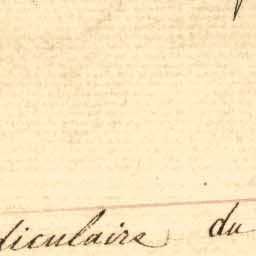 diculaire du